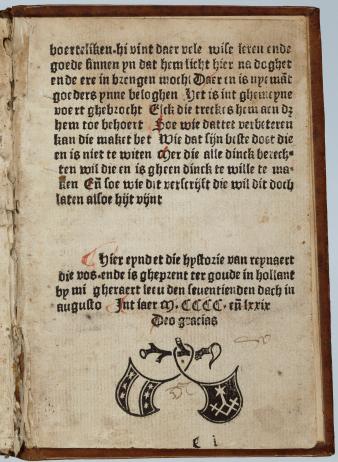 boerteliken·hi vint daer vele wise leren ende
goede sinnen yn dat hem licht hier na doghet
ende ere in brengen mocht Daer en is nyemāt
goeders ynne beloghen Het is int ghemeyne
voert ghebrocht Elck die treckes hem aen dz
hem toe behoert Soe wie dattet verbeteren
kan die maket bet Wie dat sijn beste doet die
en is niet te witen Mer die alle dinck berech-
ten wil die en is gheen dinck te wille te ma-
ken Eñ soe wie dit verscrijft die wil dit doch
laten alsoe hijt vijnt
Hier eyndet die hystorie van reynaert
die vos·ende is gheprent ter goude in hollant
by mi gheraert leeu den seuentienden dach in
augusto Int iaer M·CCCC·eñ lxxix
Deo gracias